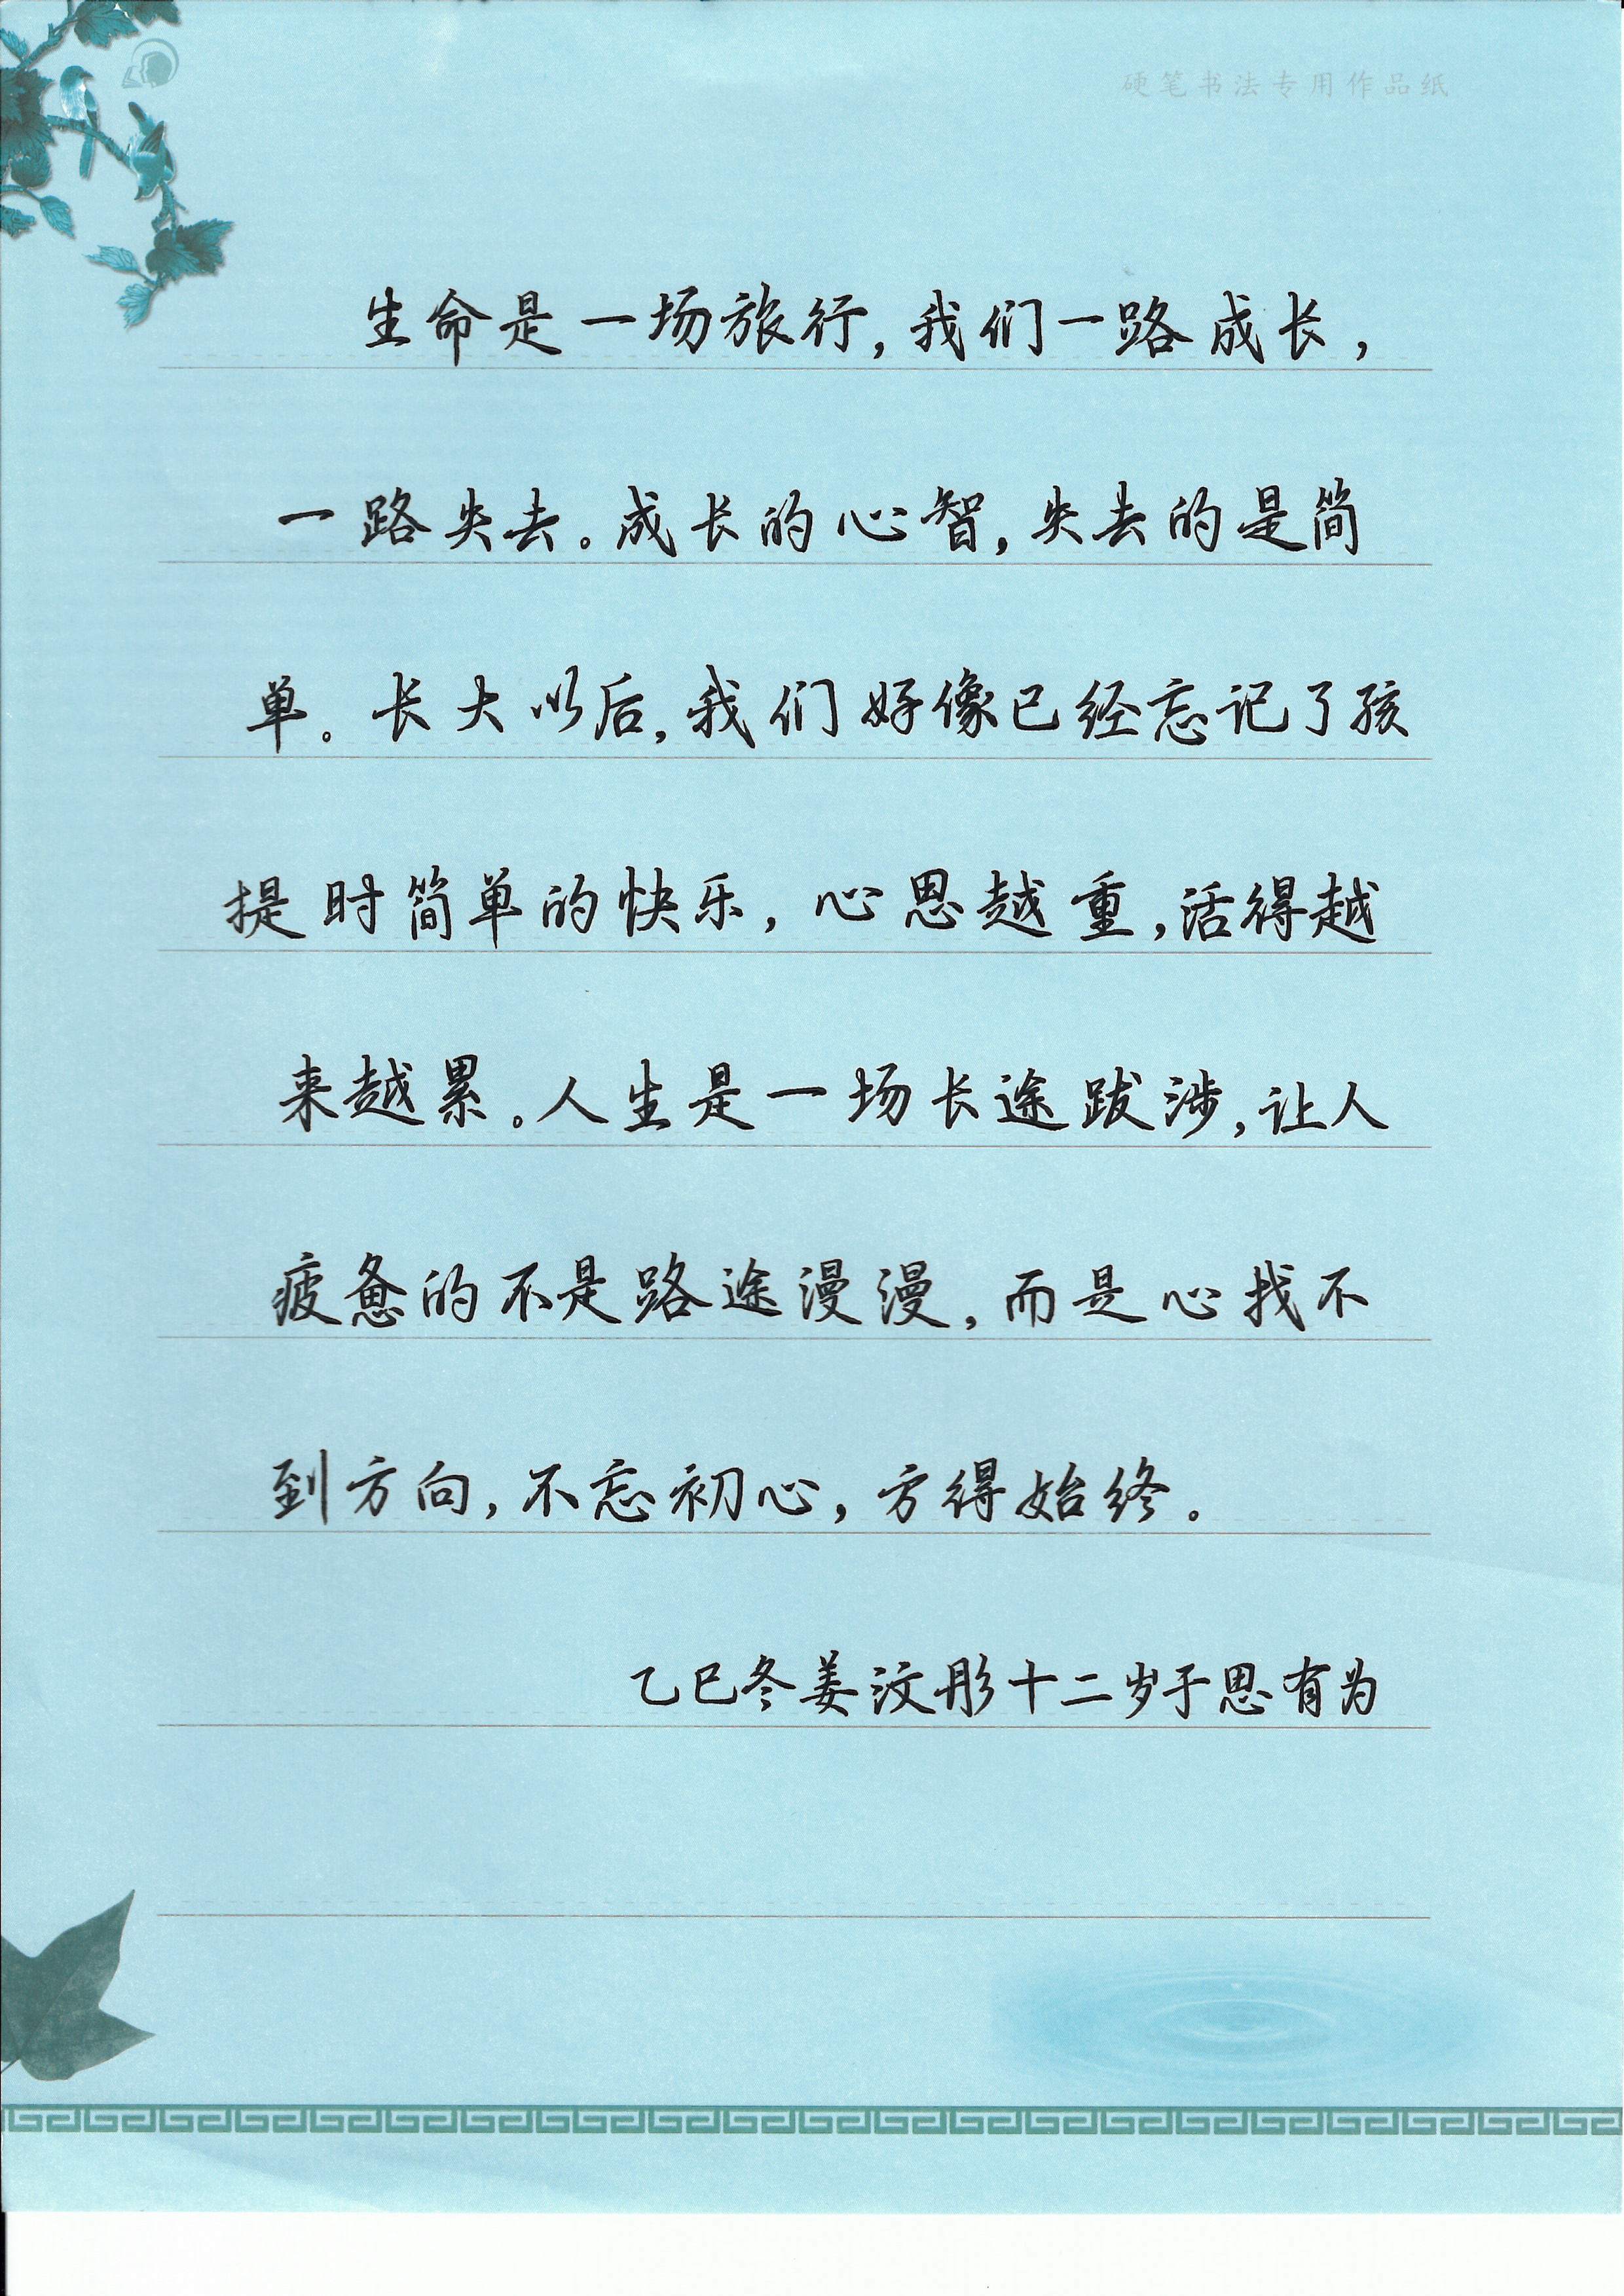 硬笔书法专用作品纸
生命是一场旅行,我们一路成长,
一路失去。成长的心智,失去的是简
单。长大以后,我们好像已经忘记了孩
提时简单的快乐,心思越重,活得越
来越累。人生是一场长途跋涉,让人
疲惫的不是路途漫漫,而是心找不
到方向,不忘初心,方得始终。
乙巳冬姜汶彤十二岁于思有为